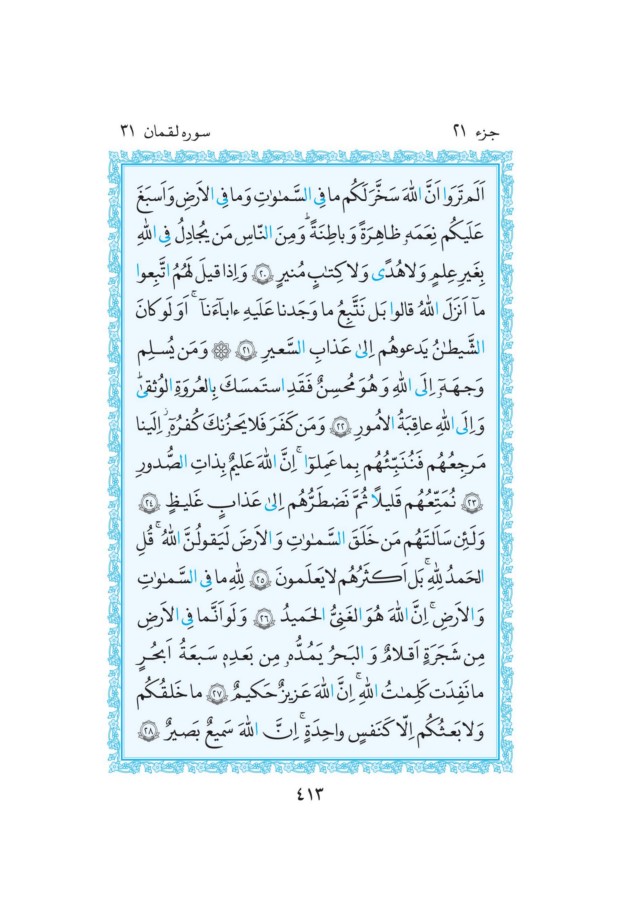 جزء ۲۱
سوره لقمان ۳۱
اَلَم تَرَوا اَنَّ اللهَ سَخَّرَ لَكُم ما فِي السَّمٰوٰتِ وَ ما فِي الاَرضِ وَ اَسبَغَ
عَلَيكُم نِعَمَهٗ ظاهِرَةً وَ باطِنَةً ۗ وَ مِنَ النّاسِ مَن يُجادِلُ فِي اللهِ
بِغَيرِ عِلمٍ وَ لا هُدًى وَ لا كِتٰبٍ مُنيرٍ ﴿۲۰﴾ وَ اِذا قيلَ لَهُمُ اتَّبِعوا
ما اَنزَلَ اللهُ قالوا بَل نَتَّبِعُ ما وَجَدنا عَلَيهِ ءاباۤءَناۤ ۚ اَوَ لَو كانَ
الشَّيطٰنُ يَدعوهُم اِلىٰ عَذابِ السَّعيرِ ﴿۲۱﴾ ۞ وَ مَن يُسلِم
وَجهَهٗۤ اِلَى اللهِ وَ هُوَ مُحسِنٌ فَقَدِ استَمسَكَ بِالعُروَةِ الوُثقىٰ ۗ
وَ اِلَى اللهِ عاقِبَةُ الاُمورِ ﴿۲۲﴾ وَ مَن كَفَرَ فَلا يَحزُنكَ كُفرُهٗۤ ۚ اِلَينا
مَرجِعُهُم فَنُنَبِّئُهُم بِما عَمِلوۤا ۚ اِنَّ اللهَ عَليمٌ بِذاتِ الصُّدورِ
﴿۲۳﴾ نُمَتِّعُهُم قَليلًا ثُمَّ نَضطَرُّهُم اِلىٰ عَذابٍ غَليظٍ ﴿۲٤﴾
وَ لَئِن سَاَلتَهُم مَن خَلَقَ السَّمٰوٰتِ وَ الاَرضَ لَيَقولُنَّ اللهُ ۚ قُلِ
الحَمدُ لِلّٰهِ ۚ بَل اَكثَرُهُم لا يَعلَمونَ ﴿۲٥﴾ لِلّٰهِ ما فِي السَّمٰوٰتِ
وَ الاَرضِ ۚ اِنَّ اللهَ هُوَ الغَنِيُّ الحَميدُ ﴿۲٦﴾ وَ لَو اَنَّما فِي الاَرضِ
مِن شَجَرَةٍ اَقلامٌ وَ البَحرُ يَمُدُّهٗ مِن بَعدِهٖ سَبعَةُ اَبحُرٍ
ما نَفِدَت كَلِمٰتُ اللهِ ۚ اِنَّ اللهَ عَزيزٌ حَكيمٌ ﴿۲۷﴾ ما خَلقُكُم
وَ لا بَعثُكُم اِلّا كَنَفسٍ واحِدَةٍ ۚ اِنَّ اللهَ سَميعٌ بَصيرٌ ﴿۲۸﴾
٤۱۳